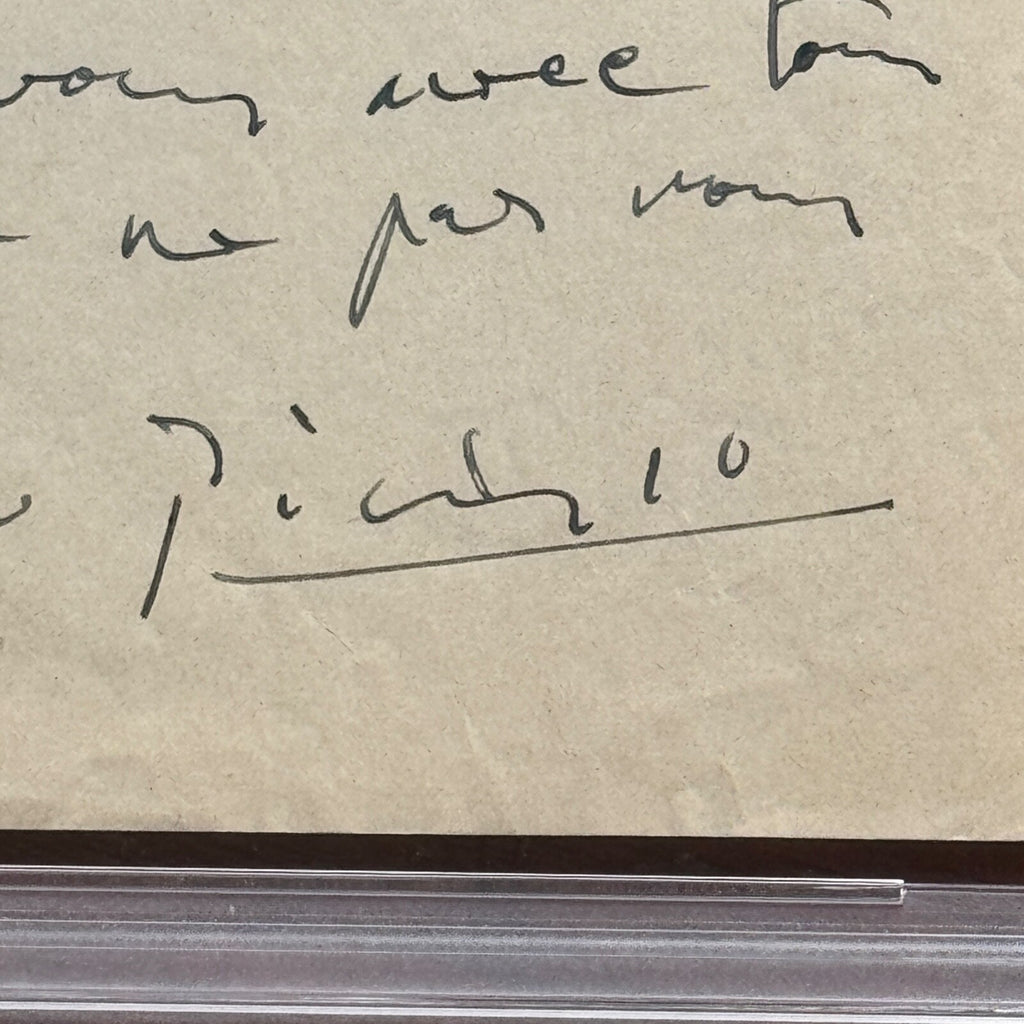 vous avec tous
ne pas vous
Picasso